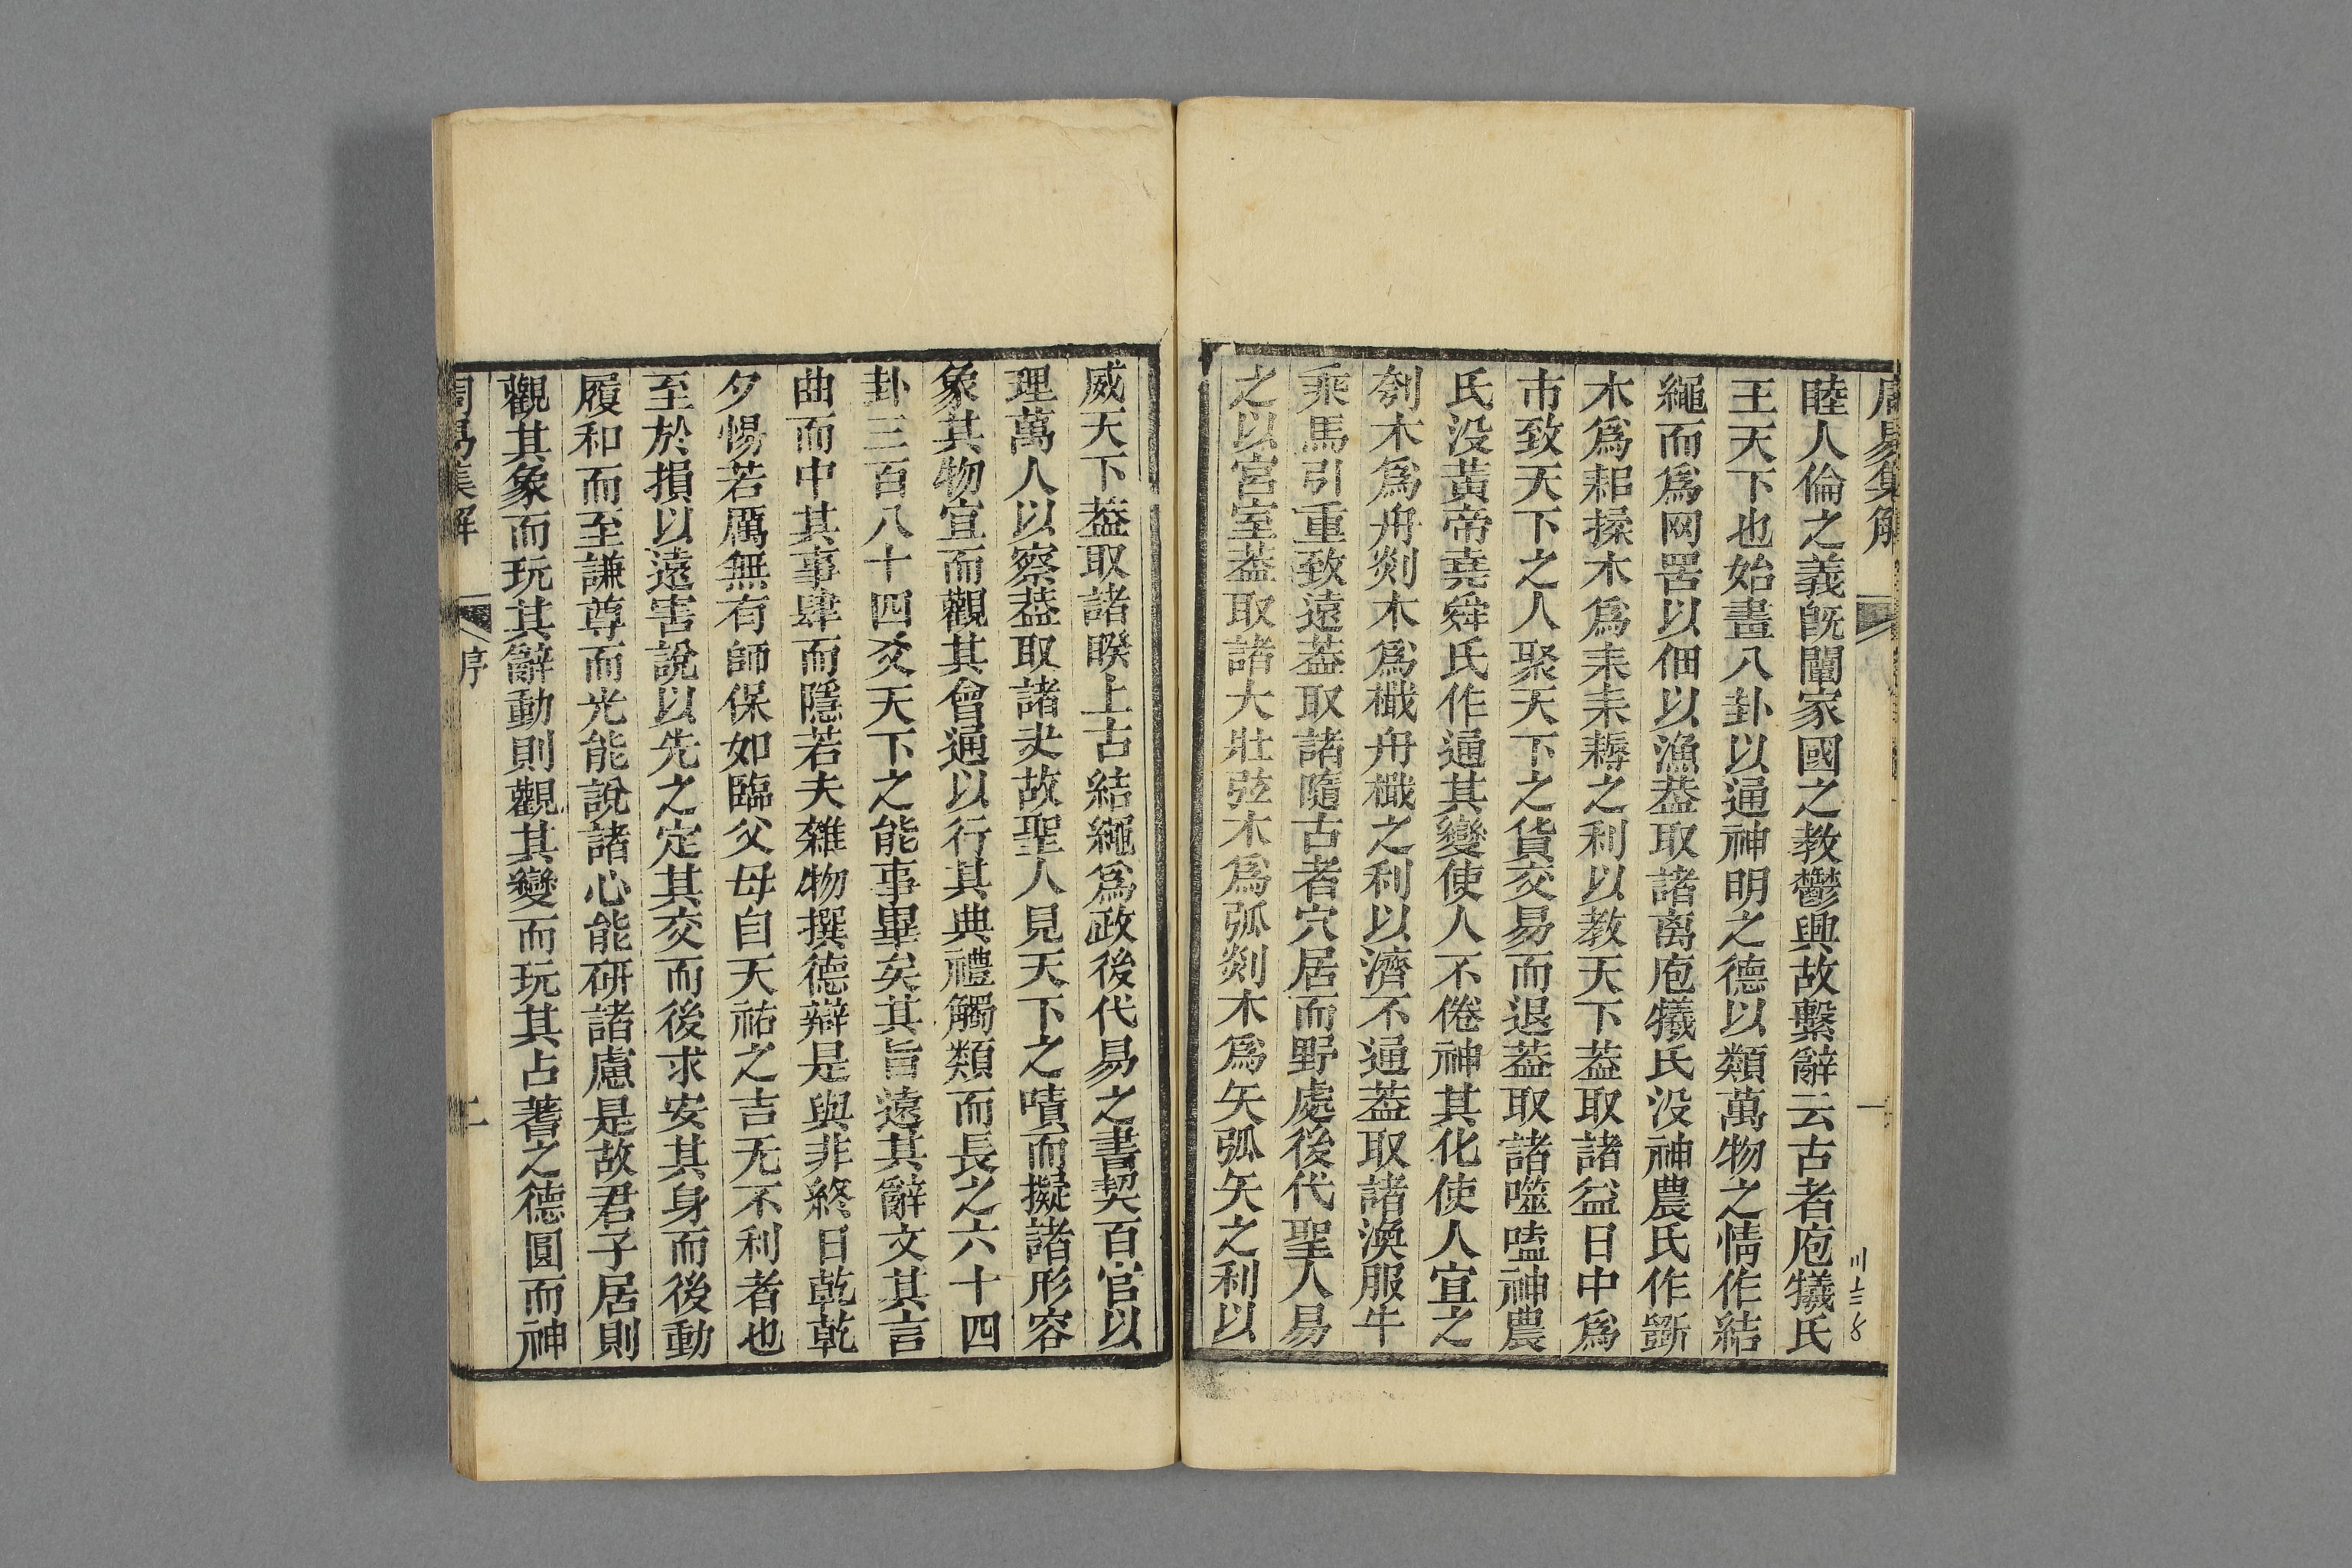 周易集解
一
睦人倫之義旣闡家國之教鬱興故繫辭云古者庖犧氏
王天下也始畫八卦以通神明之德以類萬物之情作結
繩而爲网罟以佃以漁葢取諸离庖犧氏没神農氏作斲
木爲耜揉木爲耒耒耨之利以教天下葢取諸益日中爲
市致天下之人聚天下之貨交易而退葢取諸噬嗑神農
氏没黄帝堯舜氏作通其變使人不倦神其化使人宜之
刳木爲舟剡木爲檝舟檝之利以濟不通葢取諸渙服牛
乘馬引重致遠葢取諸隨古者穴居而野處後代聖人易
之以宫室葢取諸大壯弦木爲弧剡木爲矢弧矢之利以
威天下葢取諸睽上古結繩爲政後代易之書契百官以
理萬人以察葢取諸夬故聖人見天下之嘖而擬諸形容
象其物宜而觀其會通以行其典禮觸類而長之六十四
卦三百八十四爻天下之能事畢矣其旨遠其辭文其言
曲而中其事肆而隱若夫雜物撰德辯是與非終日乾乾
夕惕若厲無有師保如臨父母自天祐之吉无不利者也
至於損以遠害說以先之定其交而後求安其身而後動
履和而至謙尊而光能說諸心能研諸慮是故君子居則
觀其象而玩其辭動則觀其變而玩其占蓍之德圓而神
周易集解
序
二